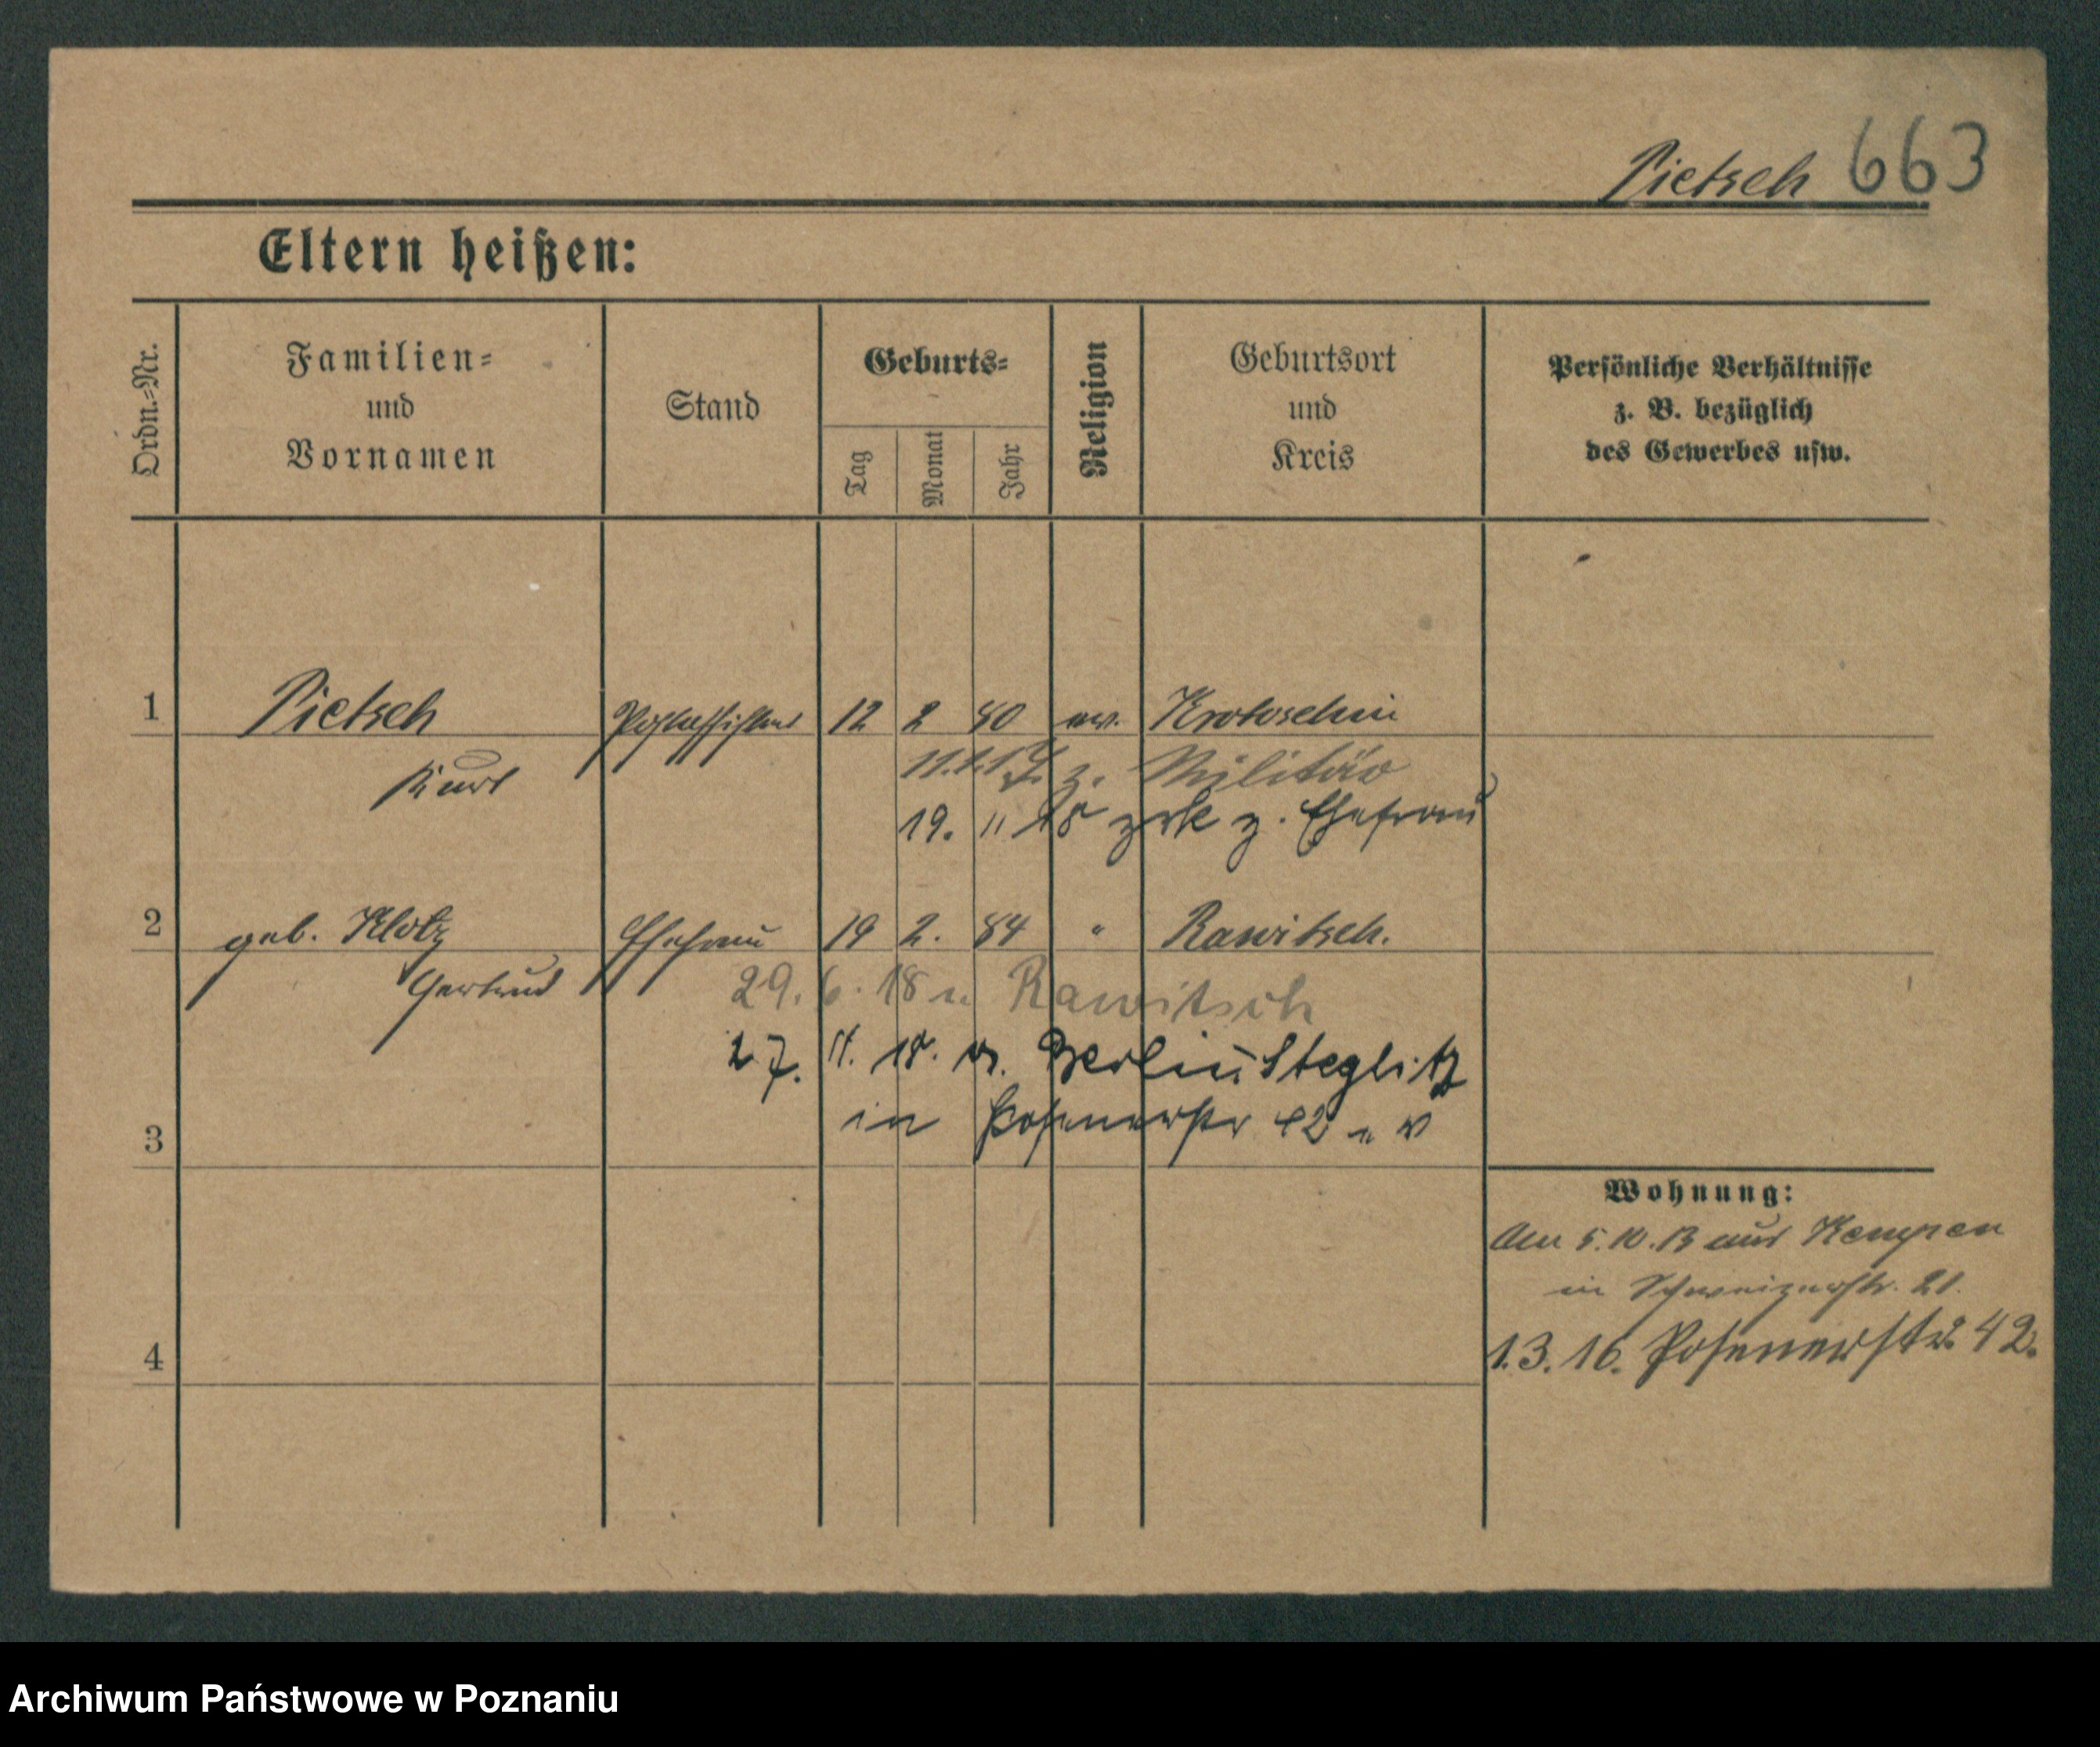 Pietsch 663
Eltern heißen:
Ordn.=Nr.
Familien=
und
Vornamen
Stand
Geburts=
Tag
Monat
Jahr
Religion
Geburtsort
und
Kreis
Persönliche Verhältnisse
z. B. bezüglich
des Gewerbes usw.
1 Pietsch Postassistent 12 2 80 ev. Krotoschin
Kurt z. Militär
19. 11 18 zrk z. Ehefrau
2 geb. Klotz Ehefrau 19 2. 84 " Rawitsch.
Gertrud 29. 6. 18 n Rawitsch
27. 11. 18. v. Berlin Steglitz
in Posenerstr 42
3
Wohnung:
Am 5.10.13 aus Kempen
in Schweizerstr. 21.
4 1.3.16. Posenerstr. 42.
Archiwum Państwowe w Poznaniu